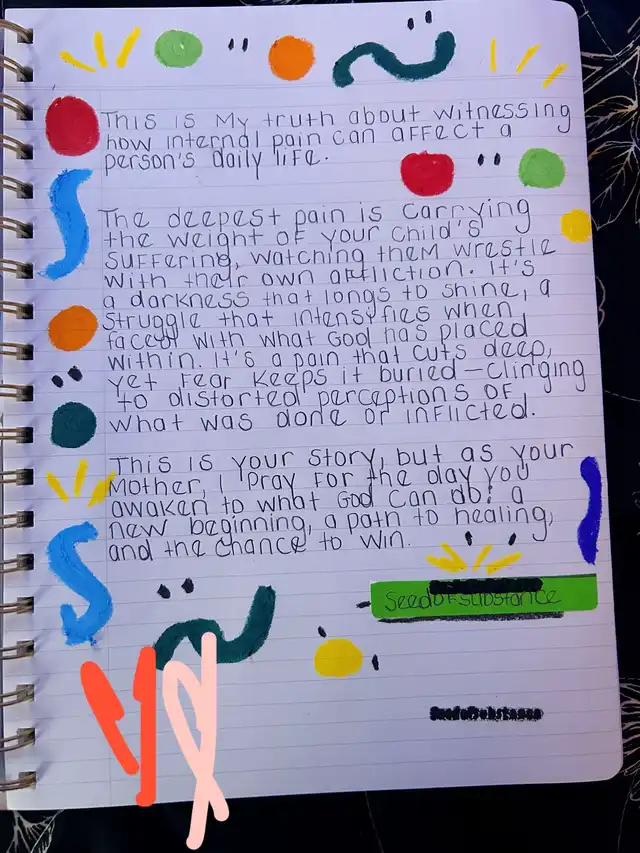 This is My truth about witnessing
how internal pain can affect a
person's daily life.
The deepest pain is carrying
the weight of your child's
suffering, watching them wrestle
with their own affliction. It's
a darkness that longs to shine, a
struggle that intensyfies when
faced with what God has placed
within. It's a pain that cuts deep,
yet fear keeps it buried—clinging
to distorted perceptions of
what was done or inflicted.
This is your story, but as your
Mother, I pray for the day you
awaken to what God can do: a
new beginning, a path to healing,
and the chance to win.
SeedofSubstance
SeedofSubstance